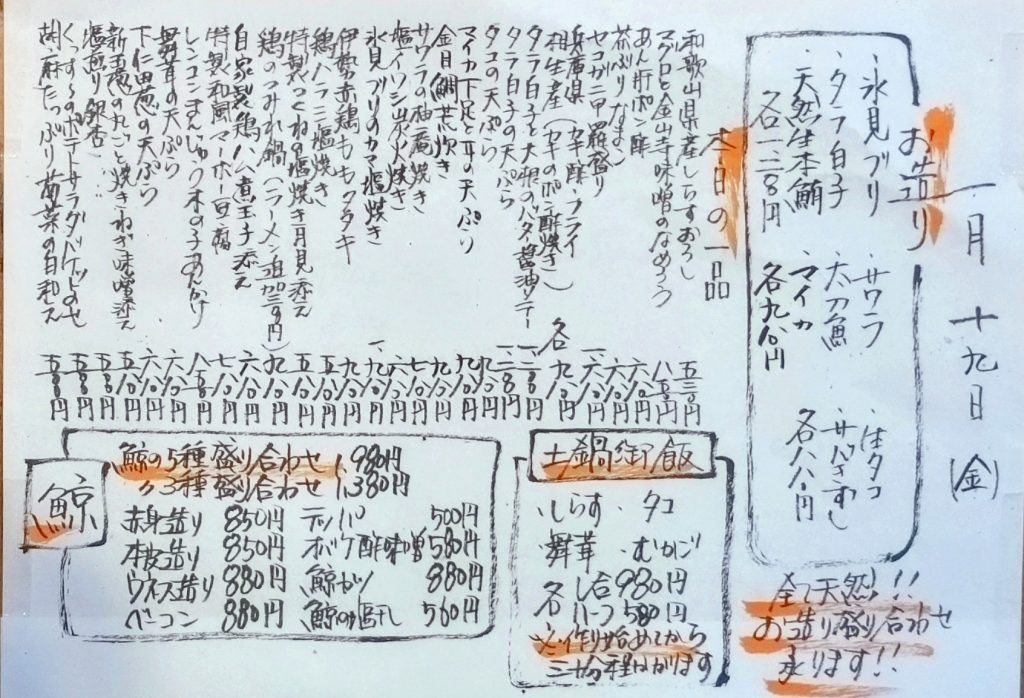 一月十九日(金)
お造り
・氷見ブリ
・タラ白子
・天然生本鮪
各一二八〇円
・サワラ
・太刀魚
・マイカ
各九八〇円
・生タコ
・サバきずし
各八八〇円
全て天然!!
お造り盛り合わせ
承ります!!
本日の一品
和歌山県産しらすおろし 五三〇円
マグロと金山寺味噌のなめろう 八五〇円
あん肝ポン酢
茶ぶりなまこ
セコガニ甲羅盛り
兵庫県相生産(カキ酢・フライ・カキのポン酢焼き) 各九八〇円
タラ白子と大根のバタ醤油ソテー
タラ白子の天ぷら
タコの天ぷら
マイカ下足と耳の天ぷら
金目鯛荒炊き
サワラの柚庵焼き
塩イワシ炭火焼き
氷見ブリのカマ塩焼き
伊勢赤鶏ももタタキ
鶏ハラミ塩焼き
特製つくねの塩焼き月見添え
鶏のつみれ鍋(ラーメン追加三〇〇円)
自家製鶏ハム煮玉子添え
特製和風マーボー豆腐
レンコンまんじゅうキの子あんかけ
舞茸の天ぷら
下仁田葱の天ぷら
新玉葱の丸ごと焼きねぎ味噌添え
塩煎り銀杏
くっすーのポテトサラダバケットのせ
胡麻たっぷり菊菜の白和え 五八〇円
土鍋御飯
・しらす ・タコ
・舞茸 ・むかご
各 一合980円
ハーフ580円
※作り始めてから
三十分程かかります
鯨
鯨の5種盛り合わせ 1,980円
〃3種盛り合わせ 1,380円
赤身造り 850円
本皮造り 850円
ウネス造り 880円
ベーコン 880円
テッパ 500円
オバケ酢味噌 580円
鯨カツ 880円
鯨の塩干し 560円